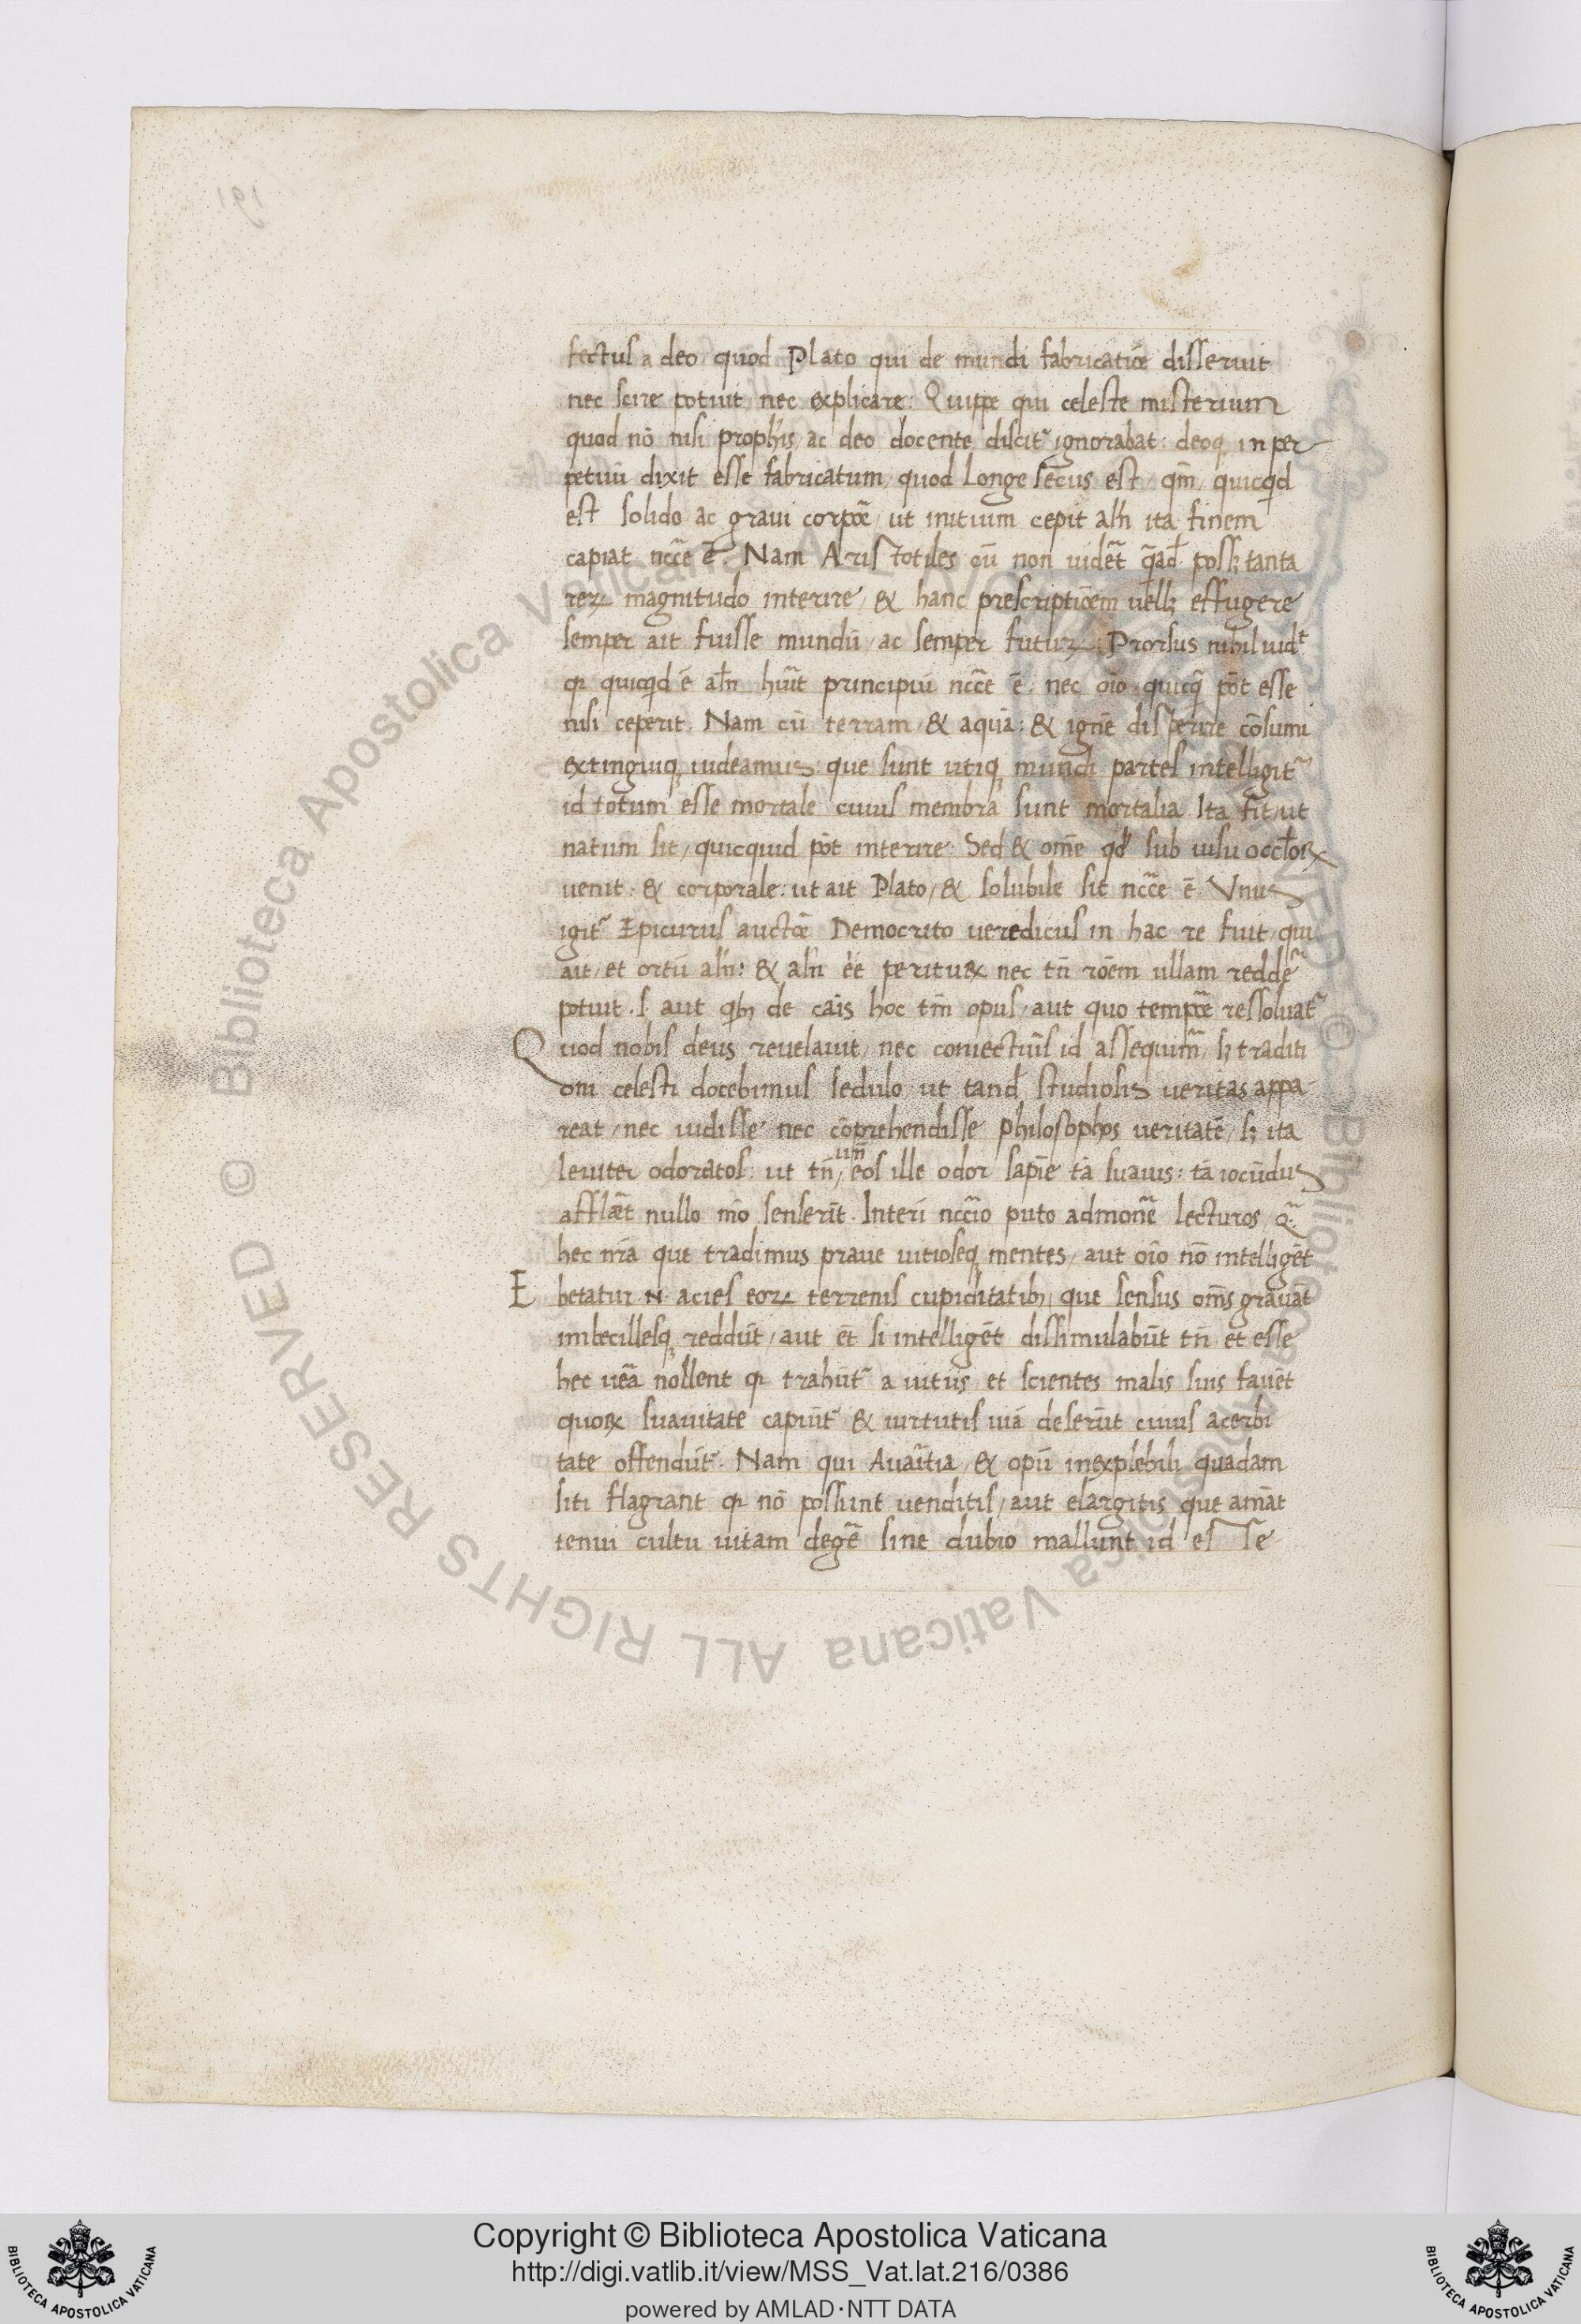 fectus a deo quod Plato qui de mundi fabricatiōe disseruit
nec scire potuit nec explicare: Quippe qui celeste misterium
quod nō nisi proph̄is ac deo docente discit᷑ ignorabat: deoq; in per
petuū dixit esse fabricatum, quod Longe secus est, qm̄, quicqd
est solido ac graui corpōe, ut initium cepit aln̄ ita finem
capiat nccē ē. Nam Aristotiles cū non uidēt q̄ad posset; tanta
reꝝ magnitudo interire, & hanc prescriptiōem uell; effugere
semper ait fuisse mundū, ac semper futurꝝ: Prorsus nihil uidt
qꝛ quicqd ē aln̄ hūit principiū nccē ē, nec oīo quicq̄ pōt esse
nisi ceperit. Nam cū terram, & aquā: & ignē disperire cōsumi
extinguiq; uideamus: que sunt utiq; mundi partes intelligit᷑
id totum esse mortale cuius membra sunt mortalia. Ita fit, ut
natum sit, quicquid pōt interire: Sed & om̄e qd̄ sub uisu oculoꝝ
uenit: & corporale: ut ait Plato, & solubile sit nccē ē. Vnus
igit᷑ Epicurus auctōe Democrito ueredicus in hac re fuit, qui
ait, et ortū aln̄: & aln̄ ēē perituꝝ nec tn̄ rōem ullam reddē
potuit. s. aut qb; de cāis hoc tm̄ opus, aut quo tempōe ressoluat᷑
Quod nobis deus reuelauit, nec coniectuīs id assequim̄, s; traditi
oni celesti docebimus sedulo ut tand studiosis ueritas appa
reat, nec uidisse nec cōprehendisse philosophos ueritatē, s; ita
leuiter odoratos: ut tn̄, eos ille odor sapīe tā suauis: tā iocūdus
un̄
afflāet nullo mō senserīt. Interī nccīo puto admonē lecturos, q̄
hec nr̄a que tradimus praue uitioseq; mentes, aut oīo nō intelligēt
Ebetatur .N. acies eoꝝ terrenis cupiditatib; que sensus om̄s grauāt
imbecillesq; reddūt, aut ēt si intelligēt dissimulabūt tn̄ et esse
hec uēa nollent qꝛ trahūt᷑ a uitiis, et scientes malis suis fauēt
quoꝝ suauitate capiūt᷑ & uirtutis uiā deserūt cuius acerbi
tate offendūt᷑. Nam qui Auaītia, & opū inexplebili quadam
siti flagrant qꝛ nō possunt uenditis, aut elargitis que amāt
tenui cultu uitam degē sine dubio mallunt id esse
Copyright © Biblioteca Apostolica Vaticana
http://digi.vatlib.it/view/MSS_Vat.lat.216/0386
powered by AMLAD·NTT DATA
BIBLIOTECA APOSTOLICA VATICANA
BIBLIOTECA APOSTOLICA VATICANA
© Biblioteca Apostolica Vaticana ALL RIGHTS RESERVED © Biblioteca Apostolica Vaticana ALL RIGHTS RESERVED
191